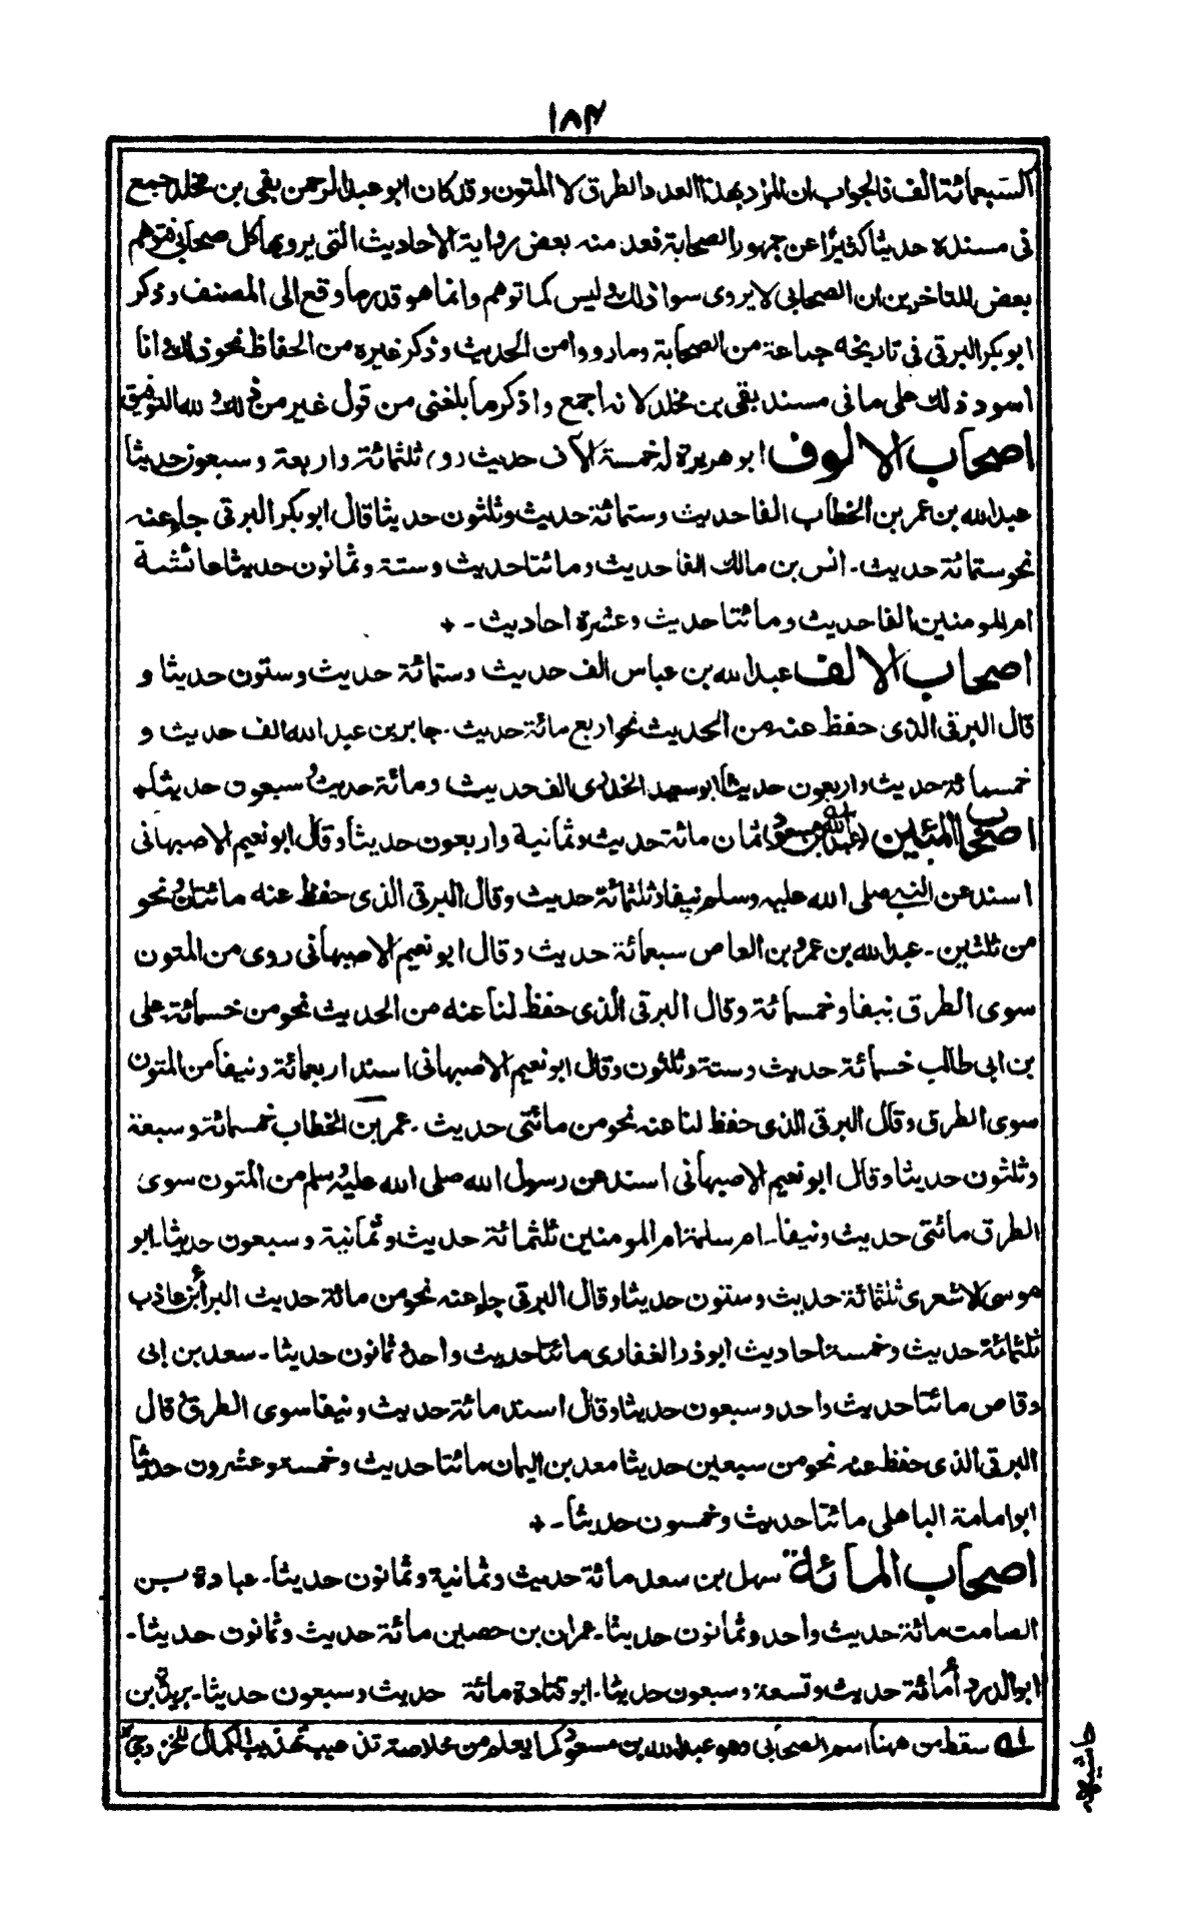 ۱۸۴
السبعمائة الف فالجواب ان المراد بهذا العدد الطرق لا المتون وقد كان ابو عبد الرحمن بقي بن مخلد جمع
في مسنده حديثا كثيرًا عن جمهور الصحابة فعد منه بعض رواية الاحاديث التي يرويها كل صحابي فتوهم
بعض المتاخرين ان الصحابي لا يروى سوا ذلك وليس كما توهم وانما هو قدر ما وقع الى المصنف وذكر
ابوبكر البرقي في تاريخه جماعة من الصحابة وما رووا من الحديث وذكر غيره من الحفاظ نحو ذلك وانا
اسود ذلك على ما في مسند بقي بن مخلد لانه اجمع واذكر ما بلغني من قول غير من ذلك ولله التوفيق
اصحاب الالوف ابو هريرة له خمسة الاف حديث (و) ثلثمائة واربعة وسبعون حديثا
عبد الله بن عمر بن الخطاب الفا حديث وستمائة حديث وثلثون حديثا قال ابوبكر البرقي جاء عنه
نحو ستمائة حديث۔ انس بن مالك الفا حديث ومائتا حديث وستة وثمانون حديثا عائشة
ام المومنين الفا حديث ومائتا حديث وعشرة احاديث۔ +
اصحاب الالف عبد الله بن عباس الف حديث وستمائة حديث وستون حديثا و
قال البرقي الذى حفظ عنه من الحديث نحو اربع مائة حديث۔ جابر بن عبد الله الف حديث و
خمسمائة حديث واربعون حديثاً ابو سعيد الخدرى الف حديث ومائة حديث وسبعون حديثا+
اصحاب المئين (عبد الله بن مسعود) ثمان مائة حديث وثمانية واربعون حديثاً وقال ابو نعيم الاصبهانى
اسند عن النبي صلى الله عليه وسلم نيفا وثلثمائة حديث وقال البرقي الذى حفظ عنه مائتان ونحو
من ثلثين۔ عبد الله بن عمرو بن العاص سبعمائة حديث وقال ابو نعيم الاصبهاني روى من المتون
سوى الطرق نيفا وخمسمائة وقال البرقي الذى حفظ لنا عنه من الحديث نحو من خمسمائة على
بن ابي طالب خمسمائة حديث وستة وثلثون وقال ابو نعيم الاصبهاني اسند اربعمائة ونيفا من المتون
سوى الطرق وقال البرقي الذى حفظ لنا عنه نحو من مائتى حديث۔ عمر بن الخطاب خمسمائة وسبعة
وثلثون حديثا وقال ابو نعيم الاصبهاني اسند عن رسول الله صلى الله عليه وسلم من المتون سوى
الطرق مائتى حديث ونيفا۔ ام سلمة ام المومنين ثلثمائة حديث وثمانية وسبعون حديثا۔ ابو
موسى الاشعرى ثلثمائة حديث وستون حديثا وقال البرقي جاء عنه نحو من مائة حديث البراء بن عاذب
ثلثمائة حديث وخمسة احاديث ابو ذر الغفارى مائتا حديث واحد وثمانون حديثا۔ سعد بن ابى
وقاص مائتا حديث واحد وسبعون حديثا وقال اسند مائة حديث ونيفا سوى الطرق وقال
البرقي الذى حفظ عنه نحو من سبعين حديثا معد بن اليمان مائتا حديث وخمسة وعشرون حديثا
ابو امامة الباهلى مائتا حديث وخمسون حديثاً۔ +
اصحاب المائة سهل بن سعد مائة حديث وثمانية وثمانون حديثا۔ عبادة بن
الصامت مائة حديث واحد وثمانون حديثا۔ عمران بن حصين مائة حديث وثمانون حديثا۔
ابو الدرداء مائة حديث وتسعة وسبعون حديثا۔ ابو قتادة مائة حديث وسبعون حديثا۔ بريدة بن
له سقط من ههنا اسم الصحابي وهو عبد الله بن مسعود كما يعلم من خلاصة تذهيب تهذيب الكمال للخزرجي
حاشيه